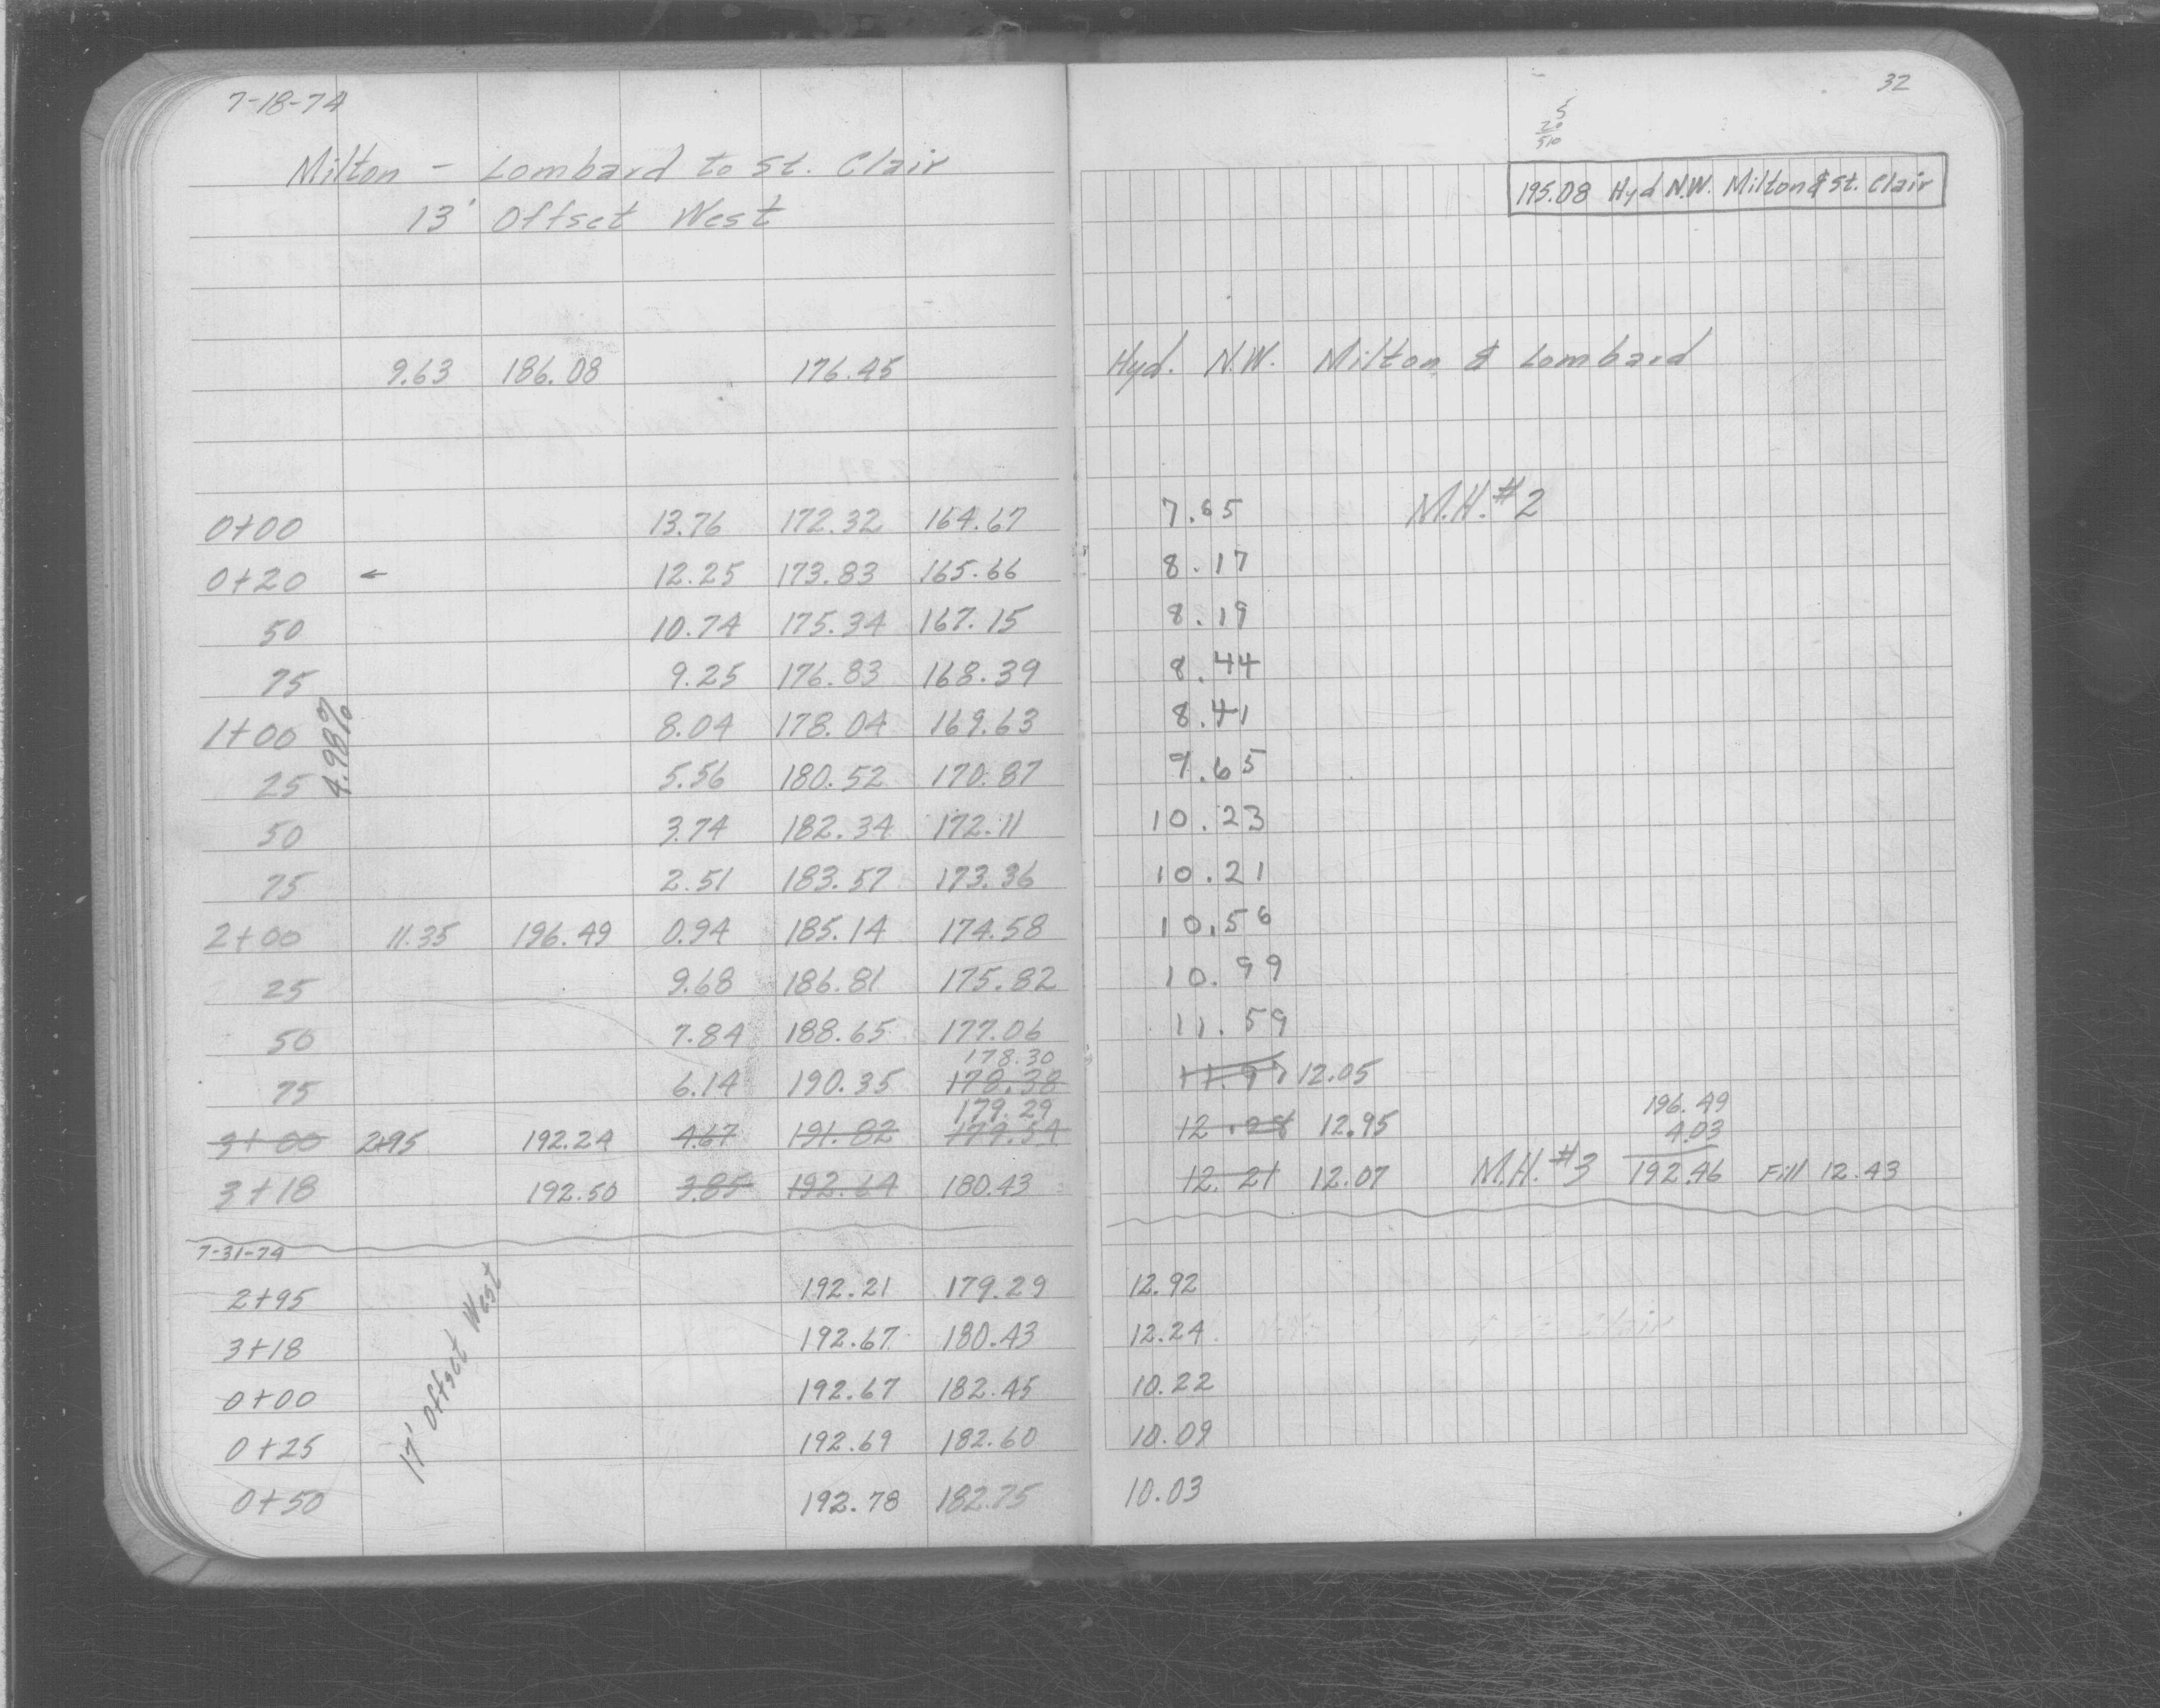 7-18-74
Milton - Lombard to St. Clair
13' Offset West
9.63 186.08 176.45
0+00 13.76 172.32 164.67
0+20 ← 12.25 173.83 165.66
50 10.74 175.34 167.15
75 9.25 176.83 168.39
1+00 8.04 178.04 169.63
4.98%
25 5.56 180.52 170.87
50 3.74 182.34 172.11
75 2.51 183.57 173.36
2+00 11.35 196.49 0.94 185.14 174.58
25 9.68 186.81 175.82
50 7.84 188.65 177.06
178.30
75 6.14 190.35 178.38
179.29
3+00 2+95 192.24 4.67 191.82 179.54
3+18 192.50 3.85 192.64 180.43
7-31-74
2+95 192.21 179.29
3+18 192.67 180.43
17' Offset West
0+00 192.67 182.45
0+25 192.69 182.60
0+50 192.78 182.75
32
195.08 Hyd N.W. Milton & St. Clair
Hyd. N.W. Milton & Lombard
7.65 M.H.#2
8.17
8.19
8.44
8.41
9.65
10.23
10.21
10.56
10.99
11.59
11.97 12.05
196.49
12.28 12.95 4.03
12.21 12.07 M.H.#3 192.46 Fill 12.43
12.92
12.24
10.22
10.09
10.03